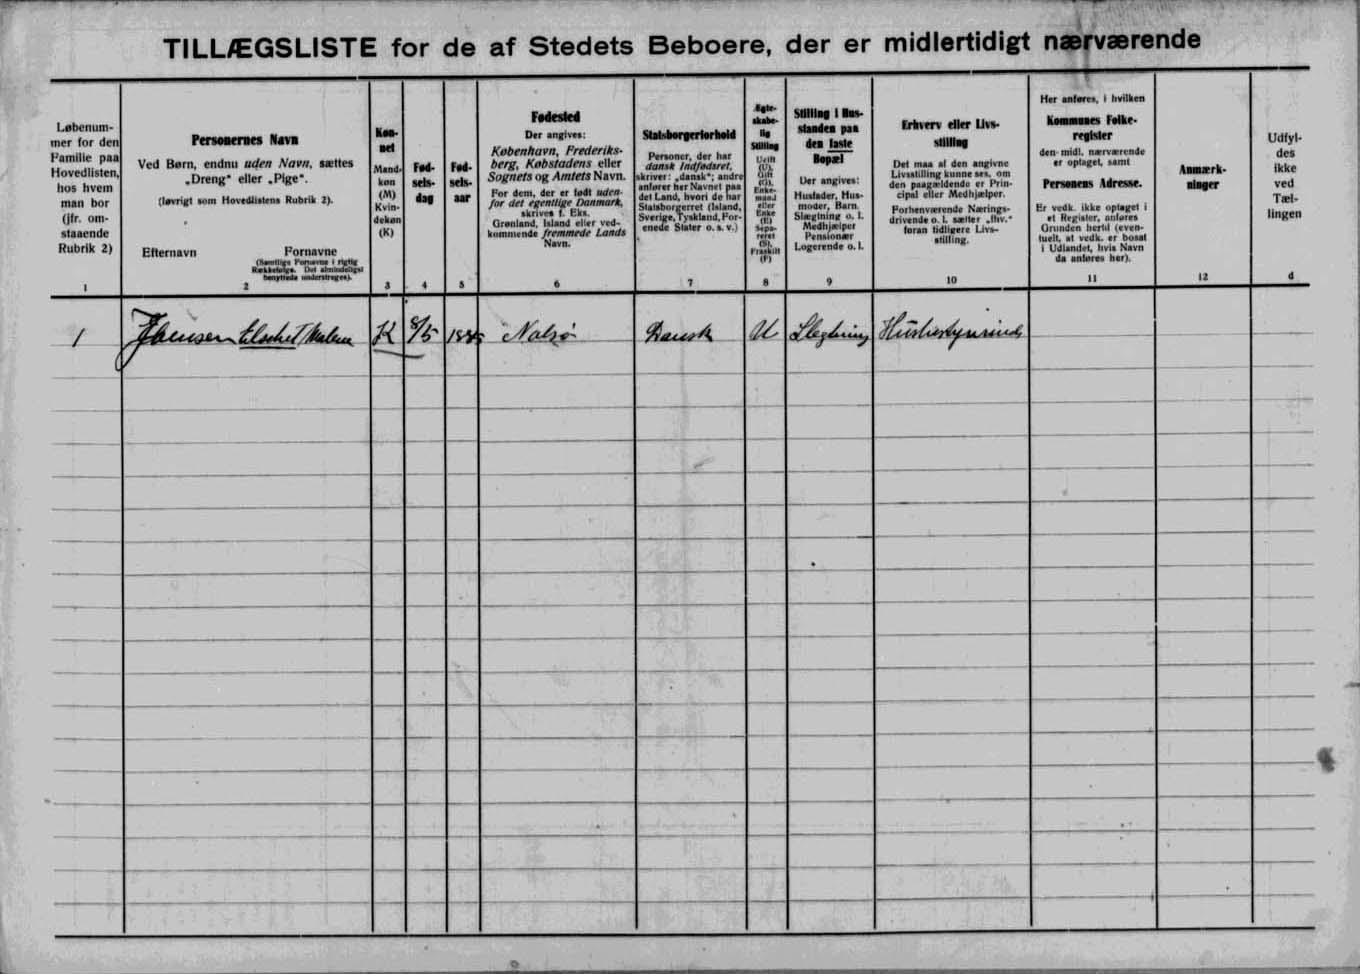 TILLÆGSLISTE for de af Stedets Beboere, der er midlertidigt nærværende
Løbenum-
mer for den
Familie paa
Hovedlisten,
hos hvem
man bor
(jfr. om-
staaende
Rubrik 2)
1
Personernes Navn
Ved Børn, endnu uden Navn, sættes
„Dreng“ eller „Pige“.
(Iøvrigt som Hovedlistens Rubrik 2).
Efternavn Fornavne
(Samtlige Fornavne i rigtig
Rækkefølge. Det almindeligst
benyttede understreges).
2
Køn-
net
Mand-
køn
(M)
Kvin-
dekøn
(K)
3
Fød-
sels-
dag
4
Fød-
sels-
aar
5
Fødested
Der angives:
København, Frederiks-
berg, Købstadens eller
Sognets og Amtets Navn.
For dem, der er født uden-
for det egentlige Danmark,
skrives f. Eks.
Grønland, Island eller ved-
kommende fremmede Lands
Navn.
6
Statsborgerforhold
Personer, der har
dansk Indfødsret,
skriver: „dansk“; andre
anfører her Navnet paa
det Land, hvori de har
Statsborgerret (Island,
Sverige, Tyskland, For-
enede Stater o. s. v.)
7
Ægte-
skabe-
lig
Stilling
Ugift
(U),
Gift
(G),
Enke-
mand
eller
Enke
(E)
Sepa-
reret
(S),
Fraskilt
(F)
8
Stilling i Hus-
standen paa
den faste
Bopæl
Der angives:
Husfader, Hus-
moder, Barn,
Slægtning o. l.
Medhjælper
Pensionær
Logerende o. l.
9
Erhverv eller Livs-
stilling
Det maa af den angivne
Livsstilling kunne ses, om
den paagældende er Prin-
cipal eller Medhjælper.
Forhenværende Nærings-
drivende o. l. sætter „fhv.“
foran tidligere Livs-
stilling.
10
Her anføres, i hvilken
Kommunes Folke-
register
den midl. nærværende
er optaget, samt
Personens Adresse.
Er vedk. ikke optaget i
et Register, anføres
Grunden hertil (even-
tuelt, at vedk. er bosat
i Udlandet, hvis Navn
da anføres her).
11
Anmærk-
ninger
12
Udfyl-
des
ikke
ved
Tæl-
lingen
d
1 Joensen Elsebet Malene K 8/5 Nolsø Dansk U Slegtning